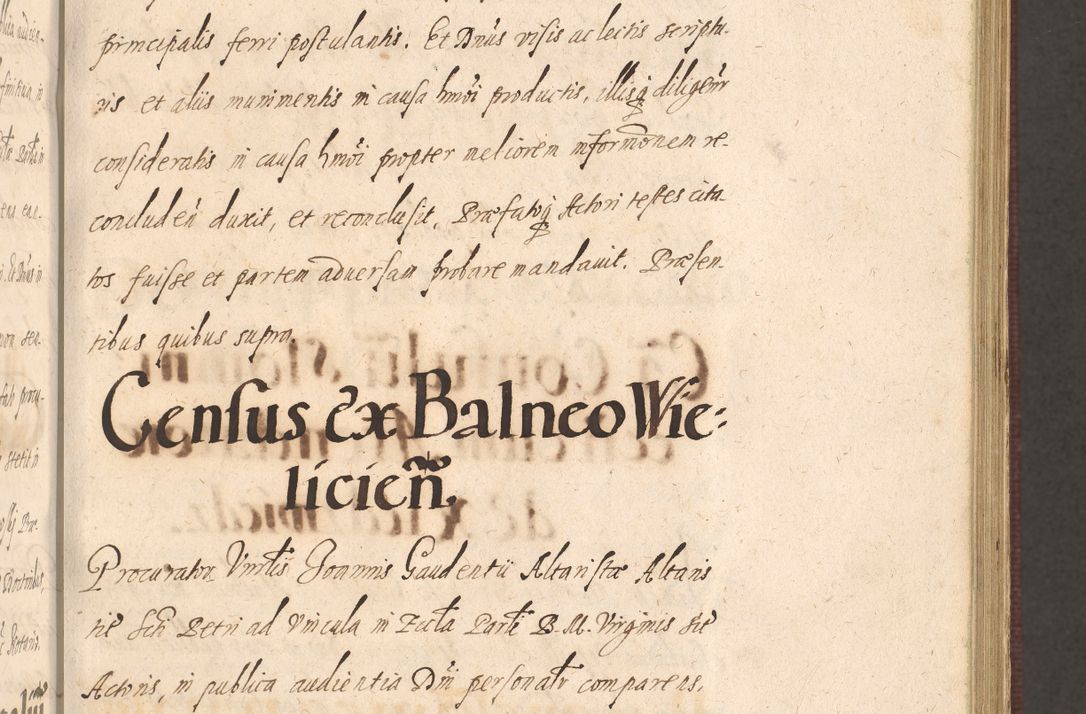 principalis ferri postulantis. Et Dnus visis ac lectis scriptu-
ris et aliis munimentis in causa hmoi productis, illisq diligenr
consideratis in causa hmoi propter meliorem informonem re-
concluden duxit, et reconclusit, Præfatoq Actori testes cita-
tos fuisse et partem adversam probare mandavit. Præsen-
tibus quibus supra.
Census ex Balneo Wie-
licien.
Procurator Vnrlis Joannis Gaudentii Altaristæ Altaris
tit Scti Petri ad Vincula in Eccla Parli B. M. Virginis sit
Actoris, in publica audientia Dni personalr comparens,